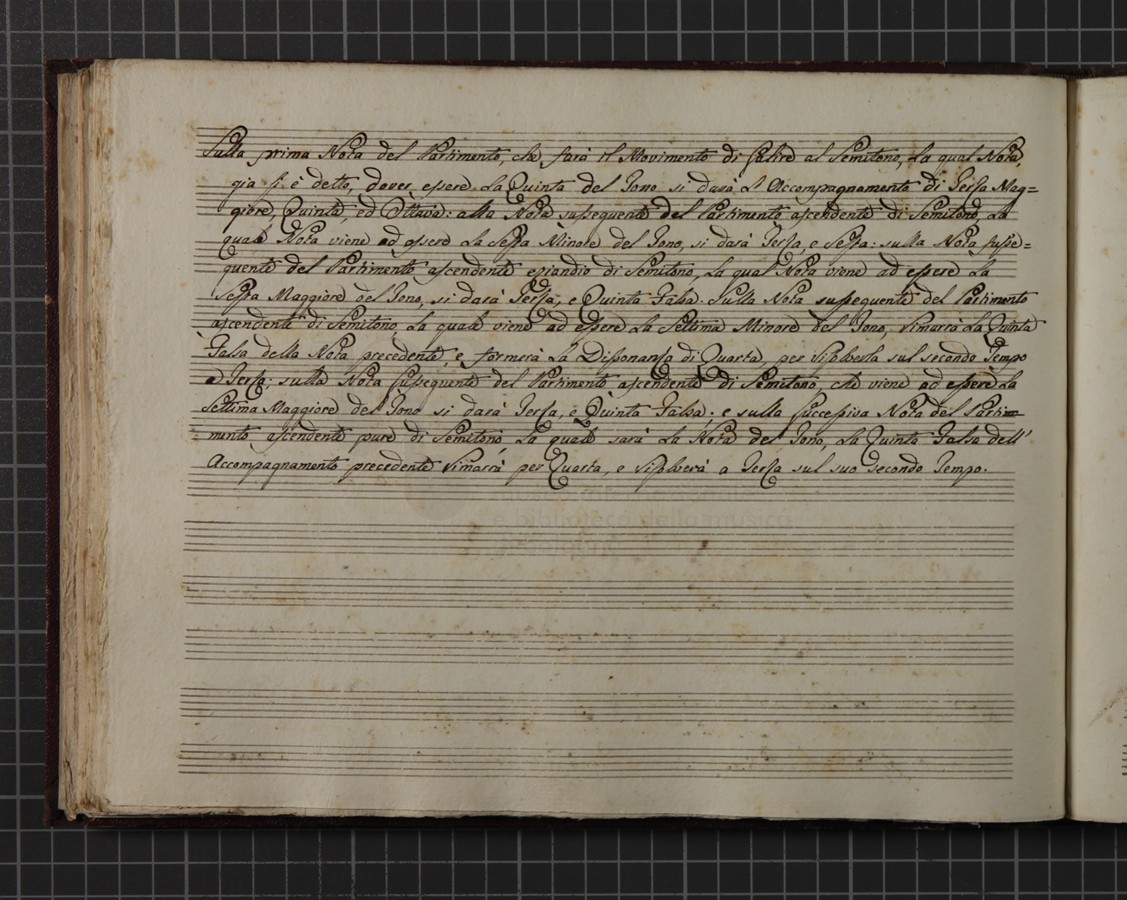 Sulla prima Nota del Partimento, che farà il Movimento di salire al Semitono, la qual Nota,
già si è detto, dover essere la Quinta del Tono si darà l'Accompagnamento di Terza Mag=
giore, Quinta, ed Ottava: alla Nota susseguente del Partimento ascendente di Semitono, la
quale Nota viene ad essere la Sesta Minore del Tono, si darà Terza, e Sesta: sulla Nota susse=
quente del Partimento ascendente eziandio di Semitono, la qual Nota viene ad essere la
Sesta Maggiore del Tono, si darà Terza, e Quinta Falsa. Sulla Nota susseguente del Partimento
ascendente di Semitono, la quale viene ad essere la Settima Minore del Tono, rimarrà la Quinta
Falsa della Nota precedente, e formerà la Dissonanza di Quarta per risolverla sul secondo Tempo
a Terza: sulla Nota susseguente del Partimento ascendente di Semitono, che viene ad essere la
Settima Maggiore del Tono si darà Terza, e Quinta Falsa: e sulla successiva Nota del Parti=
mento ascendente pure di Semitono la quale sarà la Nota del Tono, la Quinta Falsa dell'
Accompagnamento precedente rimarrà per Quarta, e risolverà a Terza sul suo secondo Tempo.